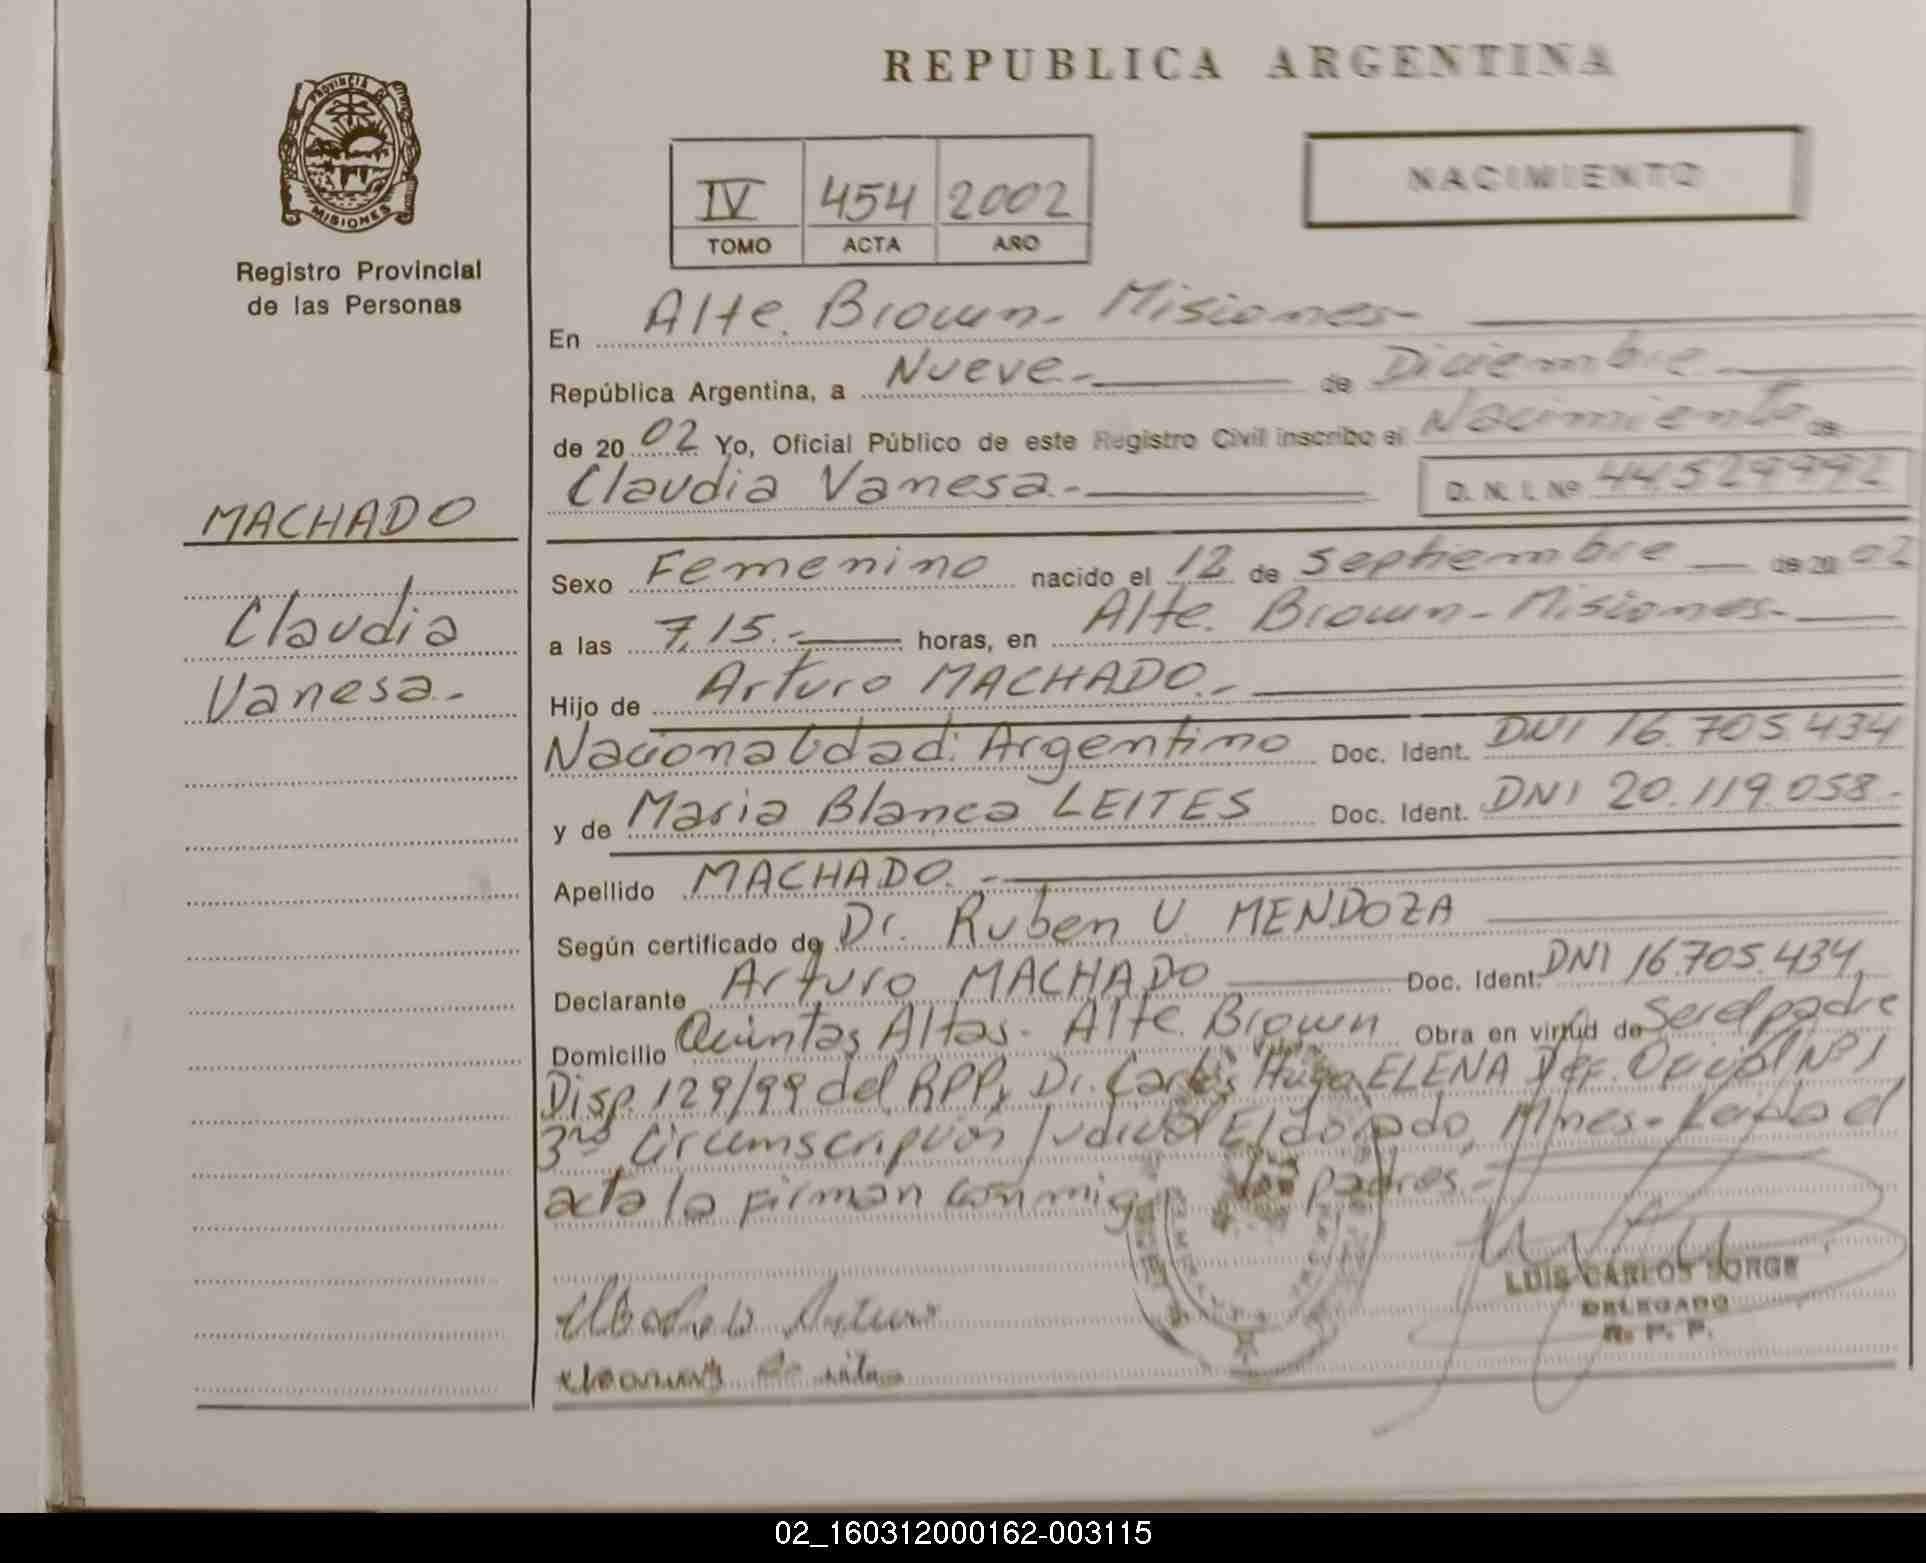 PROVINCIA DE
MISIONES
Registro Provincial
de las Personas
MACHADO
Claudia
Vanesa.-
REPUBLICA ARGENTINA
IV 454 2002
TOMO ACTA AÑO
NACIMIENTO
En Alte. Brown- Misiones-
República Argentina, a Nueve.- de Diciembre
de 2002 Yo, Oficial Público de este Registro Civil inscribo el Nacimiento de
Claudia Vanesa.- D. N. I. Nº
Sexo Femenino nacido el 12 de septiembre de 2002
a las 7,15.- horas, en Alte. Brown- Misiones-
Hijo de Arturo MACHADO.-
Nacionalidad: Argentino Doc. Ident. DNI 16.705.434
y de Maria Blanca LEITES Doc. Ident. DNI 20.119.058-
Apellido MACHADO.-
Según certificado de Dr. Ruben U. MENDOZA
Declarante Arturo MACHADO Doc. Ident. DNI 16.705.434,
Domicilio Quintas Altas- Alte. Brown Obra en virtud de Ser el padre
Disp. 129/99 del RPP, Dr. Carlos Hugo ELENA Def. Oficial Nº 1
3ra Circumscripción Judicial Eldorado, Mnes- Leida el
acta la firman conmigo los padres.-
Machado Arturo
LUIS CARLOS JORGE
DELEGADO
R. P. P.
02_160312000162-003115